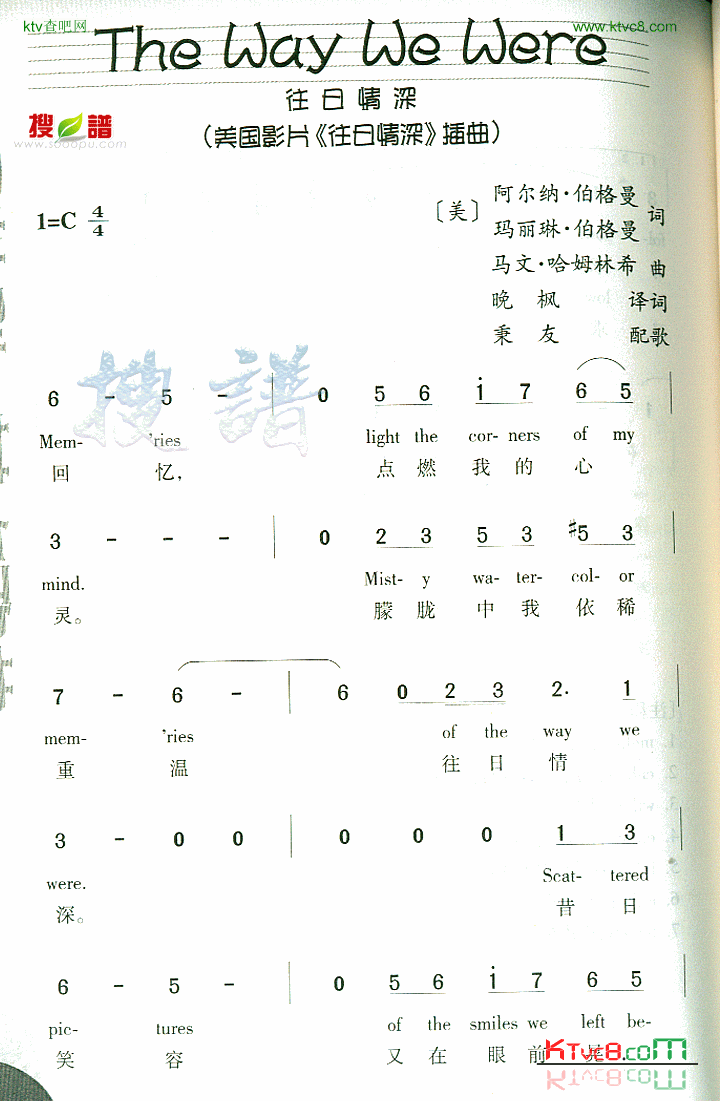 ktv查吧网
www.ktvc8.com
The Way We Were
往日情深
(美国影片《往日情深》插曲)
搜谱
www.sooopu.com
1=C 4/4
〔美〕
阿尔纳·伯格曼
玛丽琳·伯格曼 词
马文·哈姆林希 曲
晚枫 译词
秉友 配歌
搜谱
6 - 5 - | 0 5 6 i 7 6 5 |
Mem- 'ries light the cor- ners of my
回 忆, 点 燃 我 的 心
3 - - - | 0 2 3 5 3 #5 3 |
mind. Mist- y wa- ter- col- or
灵。 朦 胧 中 我 依 稀
7 - 6 - | 6 0 2 3 2. 1 |
mem- 'ries of the way we
重 温 往 日 情
3 - 0 0 | 0 0 0 1 3 |
were. Scat- tered
深。 昔 日
6 - 5 - | 0 5 6 i 7 6 5 |
pic- tures of the smiles we left be-
笑 容 又 在 眼 前
KTvc8.com